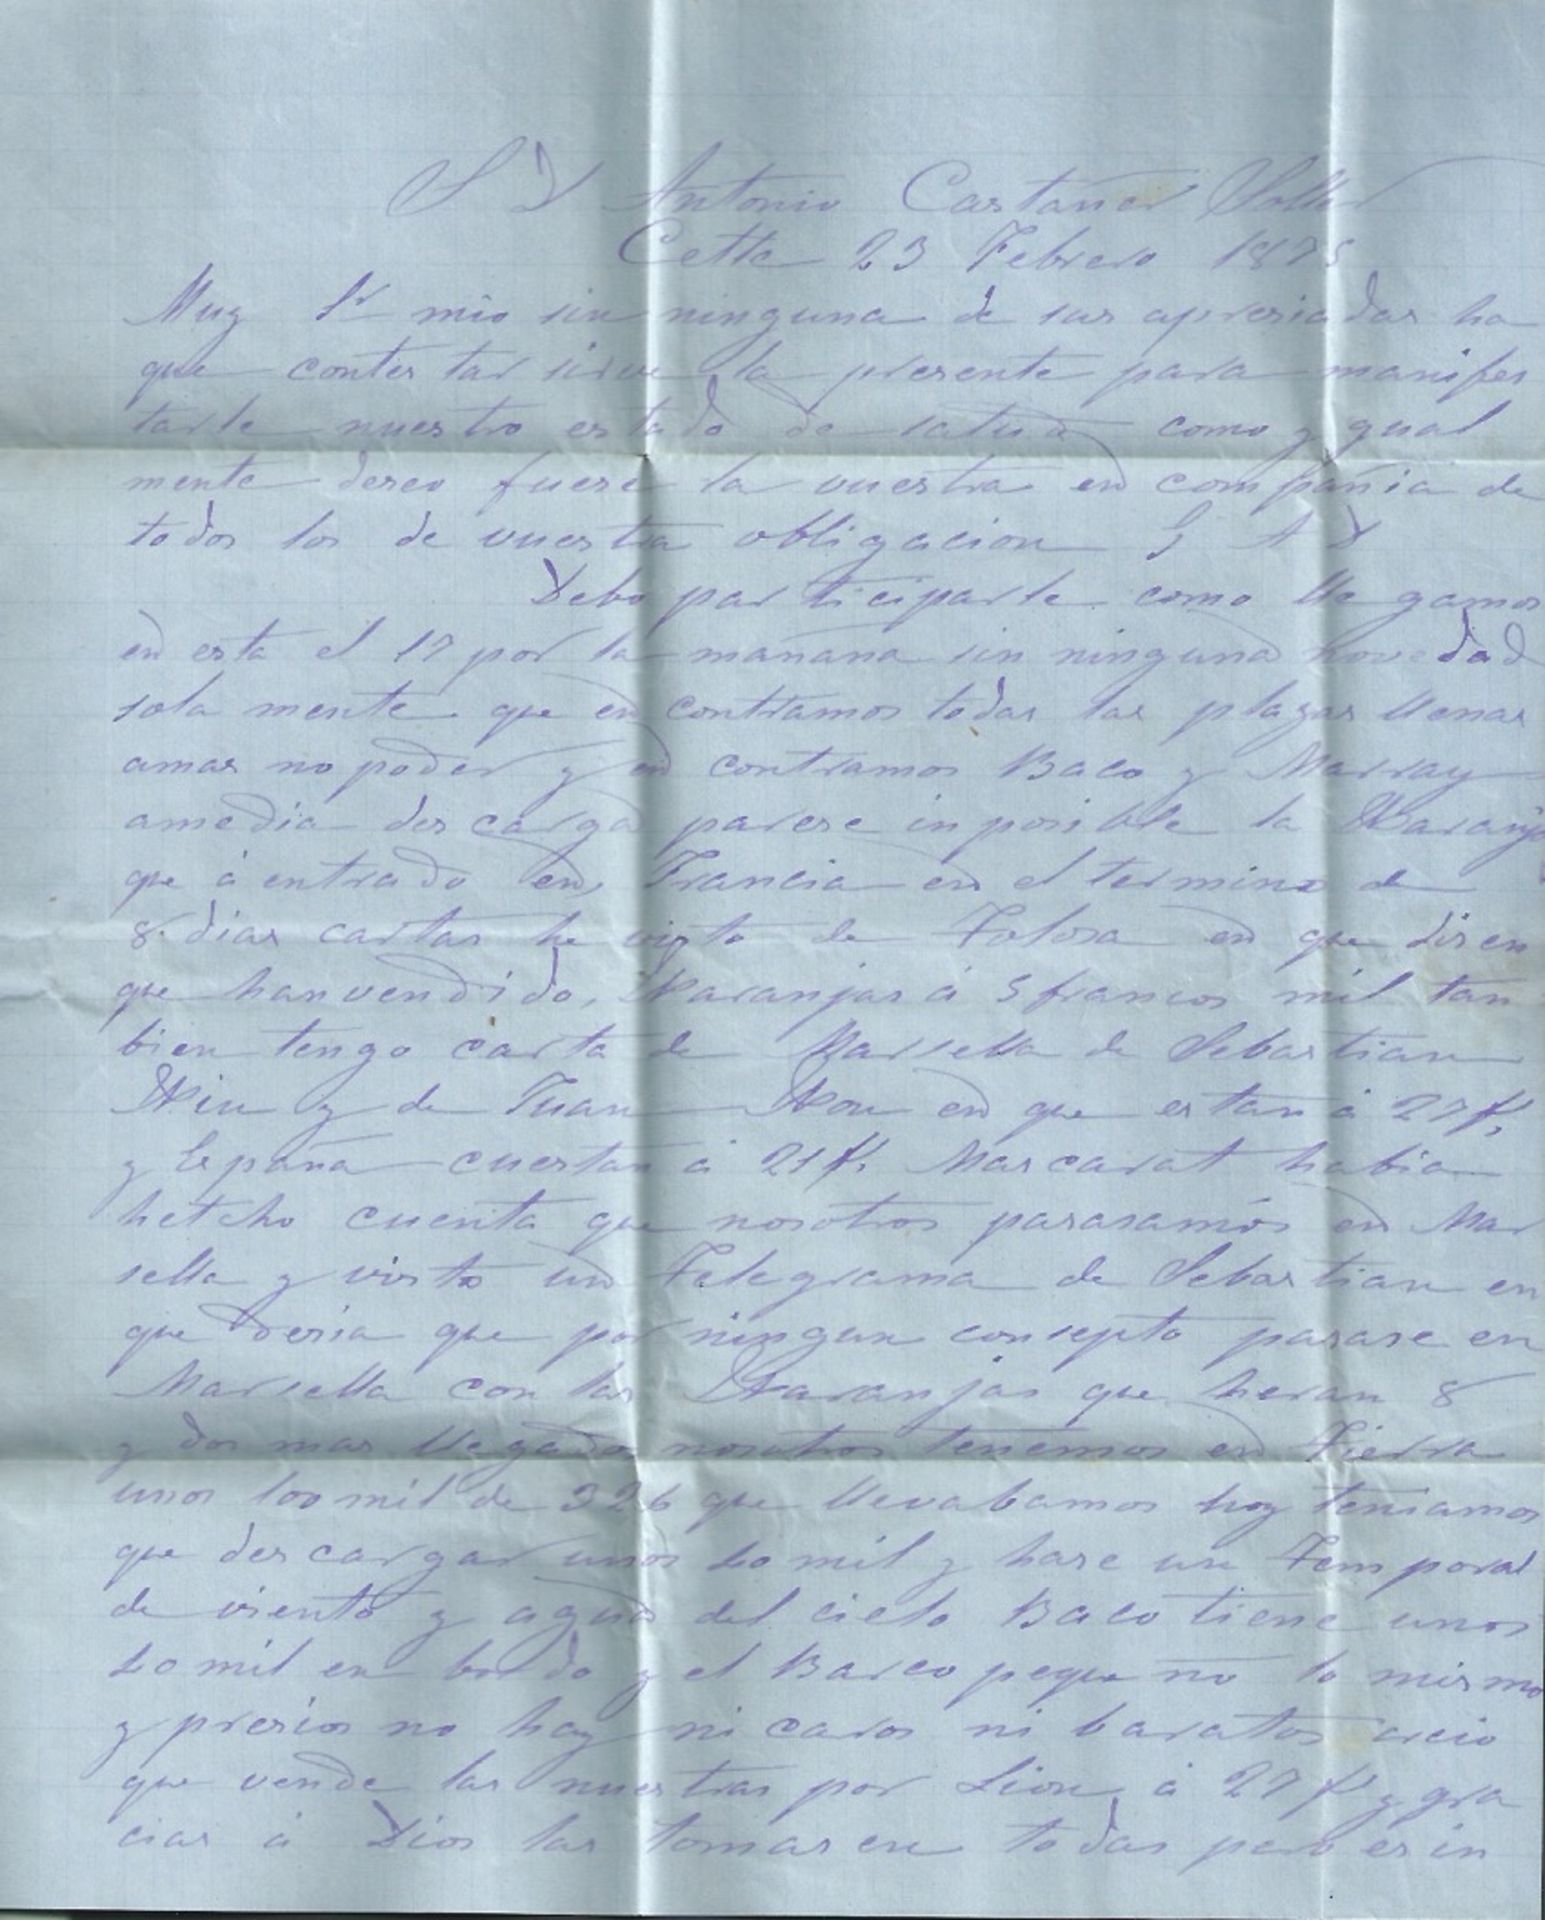 S D Antonio Castañer Soller
Cette 23 Febrero 1875
Muy Sr mio sin ninguna de sus apresiadas ha
que contes tar sirve la presente para manifes
tarle nuestro estado de salud como y gual
mente deseo fuese la vuestra en compañia de
todos los de vuestra obligacion G A D
Debo par ticiparle como lle gamos
en esta el 17 por la mañana sin ninguna novedad
sola mente que en contramos todas las plazas llenas
amas no poder y en contramos Baco y Marray
amedia des carga parese inposible la Naranja
que á entrado en Francia en el termino de
8 dias cartas he visto de Tolosa en que disen
que han vendido Naranjas á 5 francos mil tan
bien tengo carta de Marsella de Sebastian
y de Juan en que estan á 27 fs
y España cuestan á 21 fs Mascarat habia
hetcho cuenta que nosotros pasasamos en Mar
sella y visto un Telegrama de Sebastian en
que desia que por ningun consepto pasase en
Marsella con las Naranjas que heran 8
y dos mas llegados nosotros tenemos en Tierra
unos 100 mil de 326 que llevabamos hoy teniamos
que des cargar unos 40 mil y hase un Temporal
de viento y agua del cielo Baco tiene unos
40 mil en bordo y el Barco peque ño lo mismo
y presios no hay ni caros ni baratos creio
que vende las nuestras por Lion á 27 fs y gra
cias á Dios las tomasen todas pero es in